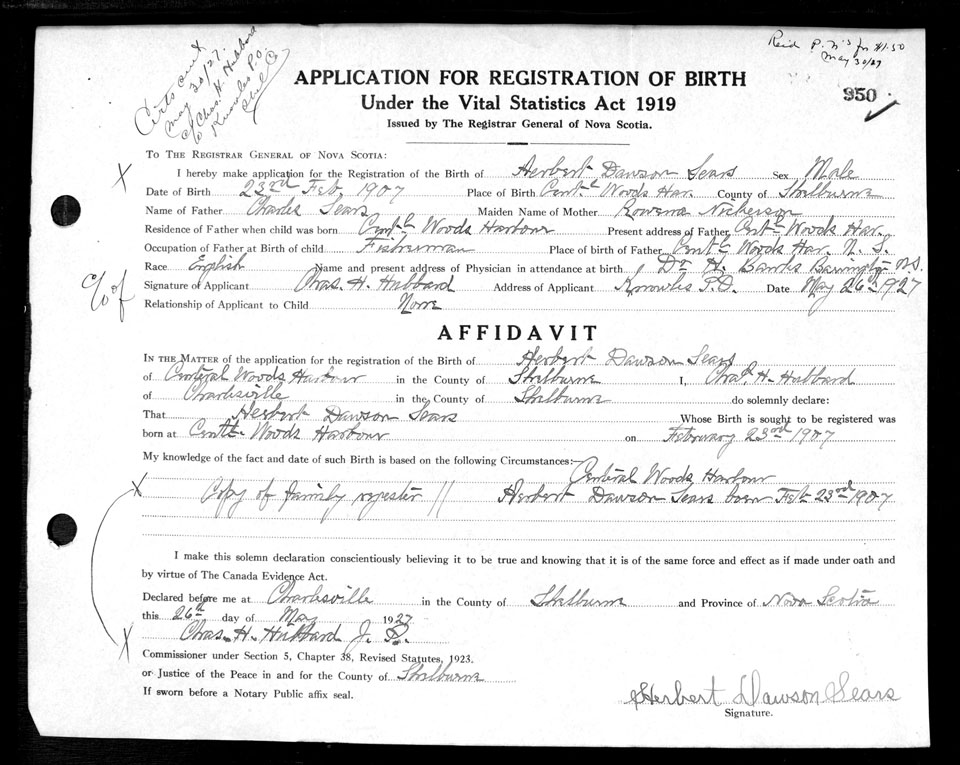 Certs sent
May 30/27.
c/o Chas. H. Hubbard
Knowles P.O.
Shel Co
Reid P.N's for $1.50
May 30/27
APPLICATION FOR REGISTRATION OF BIRTH
950
Under the Vital Statistics Act 1919
Issued by The Registrar General of Nova Scotia.
TO THE REGISTRAR GENERAL OF NOVA SCOTIA:
X I hereby make application for the Registration of the Birth of Herbert Dawson Sears Sex Male
Date of Birth 23rd Feb, 1907 Place of Birth Centl Woods Har. County of Shelburne
Name of Father Charles Sears Maiden Name of Mother Rowena Nickerson
Residence of Father when child was born Centl Woods Harbour Present address of Father Centl Woods Har.
Occupation of Father at Birth of child Fisherman Place of birth of Father Centl Woods Har. N. S.
Race English Name and present address of Physician in attendance at birth Dr H. Banks Barrington N.S.
c/o of Signature of Applicant Chas. H. Hubbard Address of Applicant Knowles P.O. Date May 26th 1927
Relationship of Applicant to Child None
AFFIDAVIT
IN THE MATTER of the application for the registration of the Birth of Herbert Dawson Sears
of Central Woods Harbour in the County of Shelburne I, Chas. H. Hubbard
of Charlesville in the County of Shelburne do solemnly declare:
That Herbert Dawson Sears Whose Birth is sought to be registered was
born at Centl. Woods Harbour on February 23rd 1907
My knowledge of the fact and date of such Birth is based on the following Circumstances:—
Central Woods Harbour
X Copy of family register // Herbert Dawson Sears born Feb 23rd 1907
I make this solemn declaration conscientiously believing it to be true and knowing that it is of the same force and effect as if made under oath and
by virtue of The Canada Evidence Act.
Declared before me at Charlesville in the County of Shelburne and Province of Nova Scotia
this 26th day of May 1927
X Chas. H. Hubbard J. P.
Commissioner under Section 5, Chapter 38, Revised Statutes, 1923.
or Justice of the Peace in and for the County of Shelburne
If sworn before a Notary Public affix seal.
Herbert Dawson Sears
Signature.